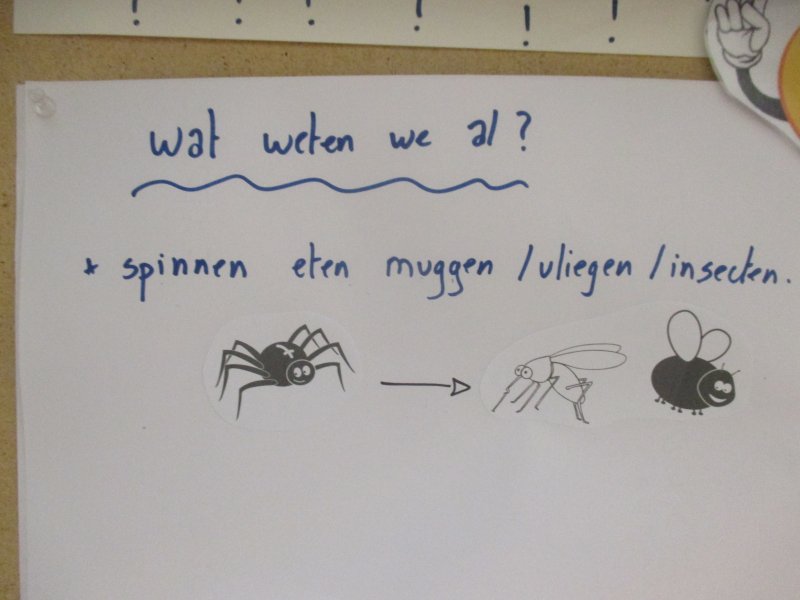 ! ! ! ! ! !
wat weten we al?
* spinnen eten muggen / vliegen / insecten.